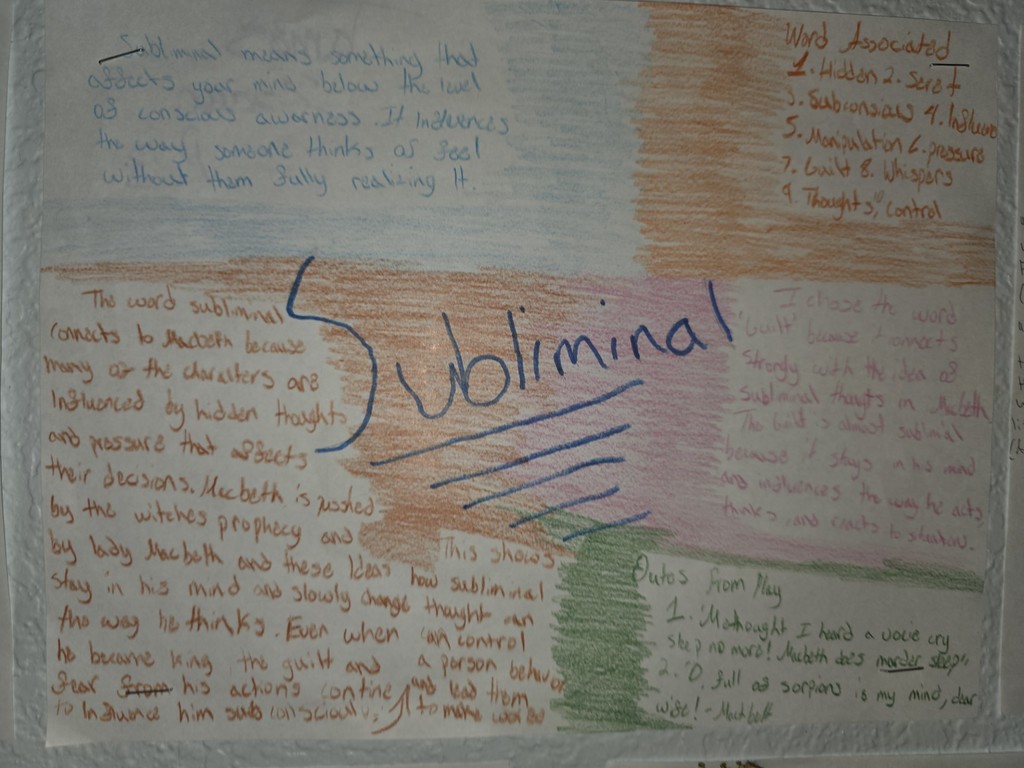 Subliminal means something that
affects your mind below the level
of conscious awarness. It Influences
the way someone thinks of feel
without them fully realizing It.
Word Associated
1. Hidden 2. Secret
3. Subconsious 4. Influence
5. Manipulation 6. pressure
7. Guilt 8. Whispers
9. Thoughts, control
Subliminal
The word subliminal
connects to Macbeth because
many of the charaters are
Influenced by hidden thoughts
and pressure that affects
their decisions. Macbeth is pushed
by the witches prophecy and
by lady Macbeth and these Ideas
stay in his mind and slowly change
the way he thinks. Even when
he became king the guilt and
fear his actions contine
to Influence him subconsciously.
This shows
how subliminal
thought can
can control
a person behavior
and lead them
to make
I chose the word
'Guilt' because connects
strongly with the idea of
subliminal thougts in Macbeth
The guilt is almost sublimial
because it stays in his mind
and influences the way he acts
thinks and reacts to situation.
Qutos from Play
1. 'Methought I heard a vocie cry
sleep no more! Macbeth does murder sleep"
2. 'O full of sorpions is my mind, dear
wife! - Macbeth